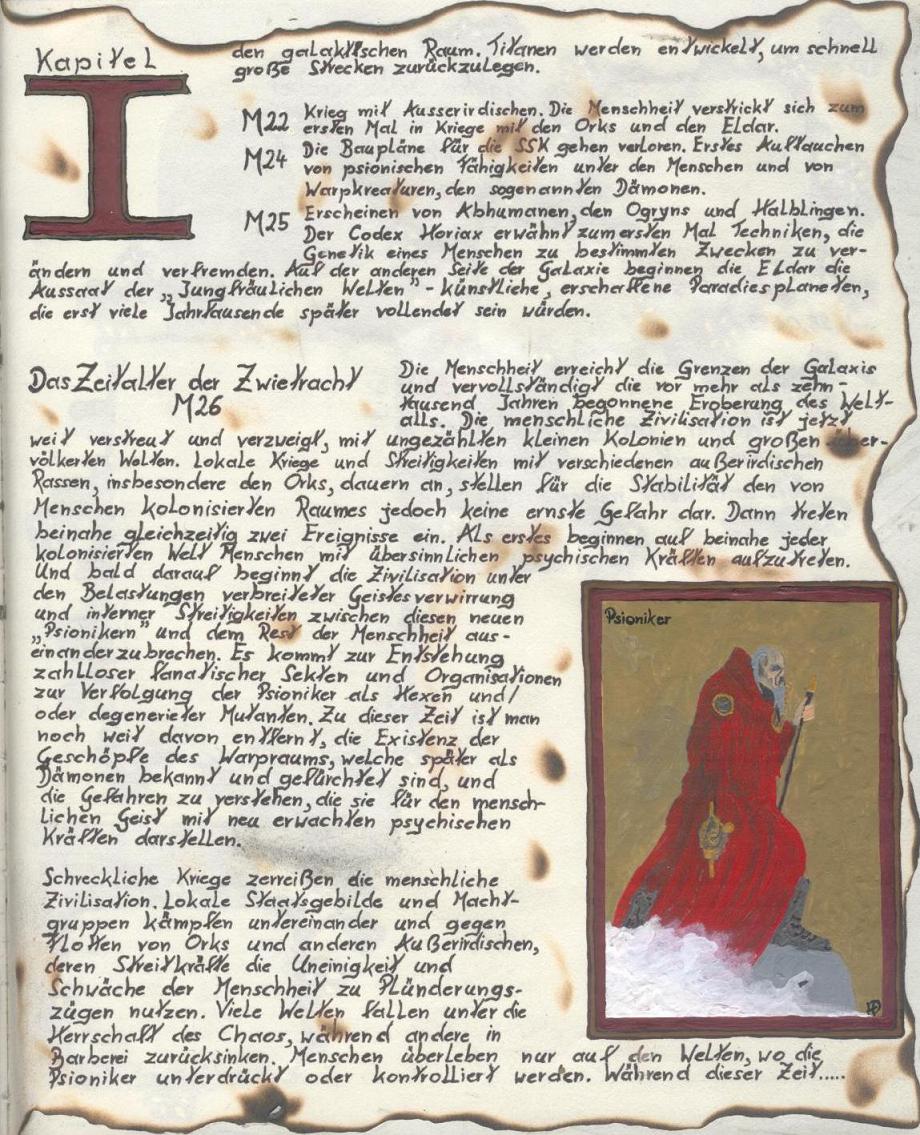 Kapitel
I
den galaktischen Raum. Titanen werden entwickelt, um schnell
große Strecken zurückzulegen.
M22 Krieg mit Ausserirdischen. Die Menschheit verstrickt sich zum
ersten Mal in Kriege mit den Orks und den Eldar.
M24 Die Baupläne für die SSK gehen verloren. Erstes Auftauchen
von psionischen Fähigkeiten unter den Menschen und von
Warpkreaturen, den sogenannten Dämonen.
M25 Erscheinen von Abhumanen, den Ogryns und Halblingen.
Der Codex Horiax erwähnt zum ersten Mal Techniken, die
Genetik eines Menschen zu bestimmten Zwecken zu ver-
ändern und verfremden. Auf der anderen Seite der Galaxie beginnen die Eldar die
Aussaat der „Jungfräulichen Welten" - künstliche, erschaffene Paradiesplaneten,
die erst viele Jahrtausende später vollendet sein würden.
Das Zeitalter der Zwietracht
M26
Die Menschheit erreicht die Grenzen der Galaxis
und vervollständigt die vor mehr als zehn-
tausend Jahren begonnene Eroberung des Welt-
alls. Die menschliche Zivilisation ist jetzt
weit verstreut und verzweigt, mit ungezählten kleinen Kolonien und großen über-
völkerten Welten. Lokale Kriege und Streitigkeiten mit verschiedenen außerirdischen
Rassen, insbesondere den Orks, dauern an, stellen für die Stabilität den von
Menschen kolonisierten Raumes jedoch keine ernste Gefahr dar. Dann treten
beinahe gleichzeitig zwei Ereignisse ein. Als erstes beginnen auf beinahe jeder
kolonisierten Welt Menschen mit übersinnlichen psychischen Kräften aufzutreten.
Und bald darauf beginnt die Zivilisation unter
den Belastungen verbreiteter Geistesverwirrung
und interner Streitigkeiten zwischen diesen neuen
„Psionikern" und dem Rest der Menschheit aus-
einanderzubrechen. Es kommt zur Entstehung
zahlloser fanatischer Sekten und Organisationen
zur Verfolgung der Psioniker als Hexen und/
oder degenerierter Mutanten. Zu dieser Zeit ist man
noch weit davon entfernt, die Existenz der
Geschöpfe des Warpraums, welche später als
Dämonen bekannt und gefürchtet sind, und
die Gefahren zu verstehen, die sie für den mensch-
lichen Geist mit neu erwachten psychischen
Kräften darstellen.
Psioniker
Schreckliche Kriege zerreißen die menschliche
Zivilisation. Lokale Staatsgebilde und Macht-
gruppen kämpfen untereinander und gegen
Flotten von Orks und anderen Außerirdischen,
deren Streitkräfte die Uneinigkeit und
Schwäche der Menschheit zu Plünderungs-
zügen nutzen. Viele Welten fallen unter die
Herrschaft des Chaos, während andere in
Barberei zurücksinken. Menschen überleben nur auf den Welten, wo die
Psioniker unterdrückt oder kontrolliert werden. Während dieser Zeit.....